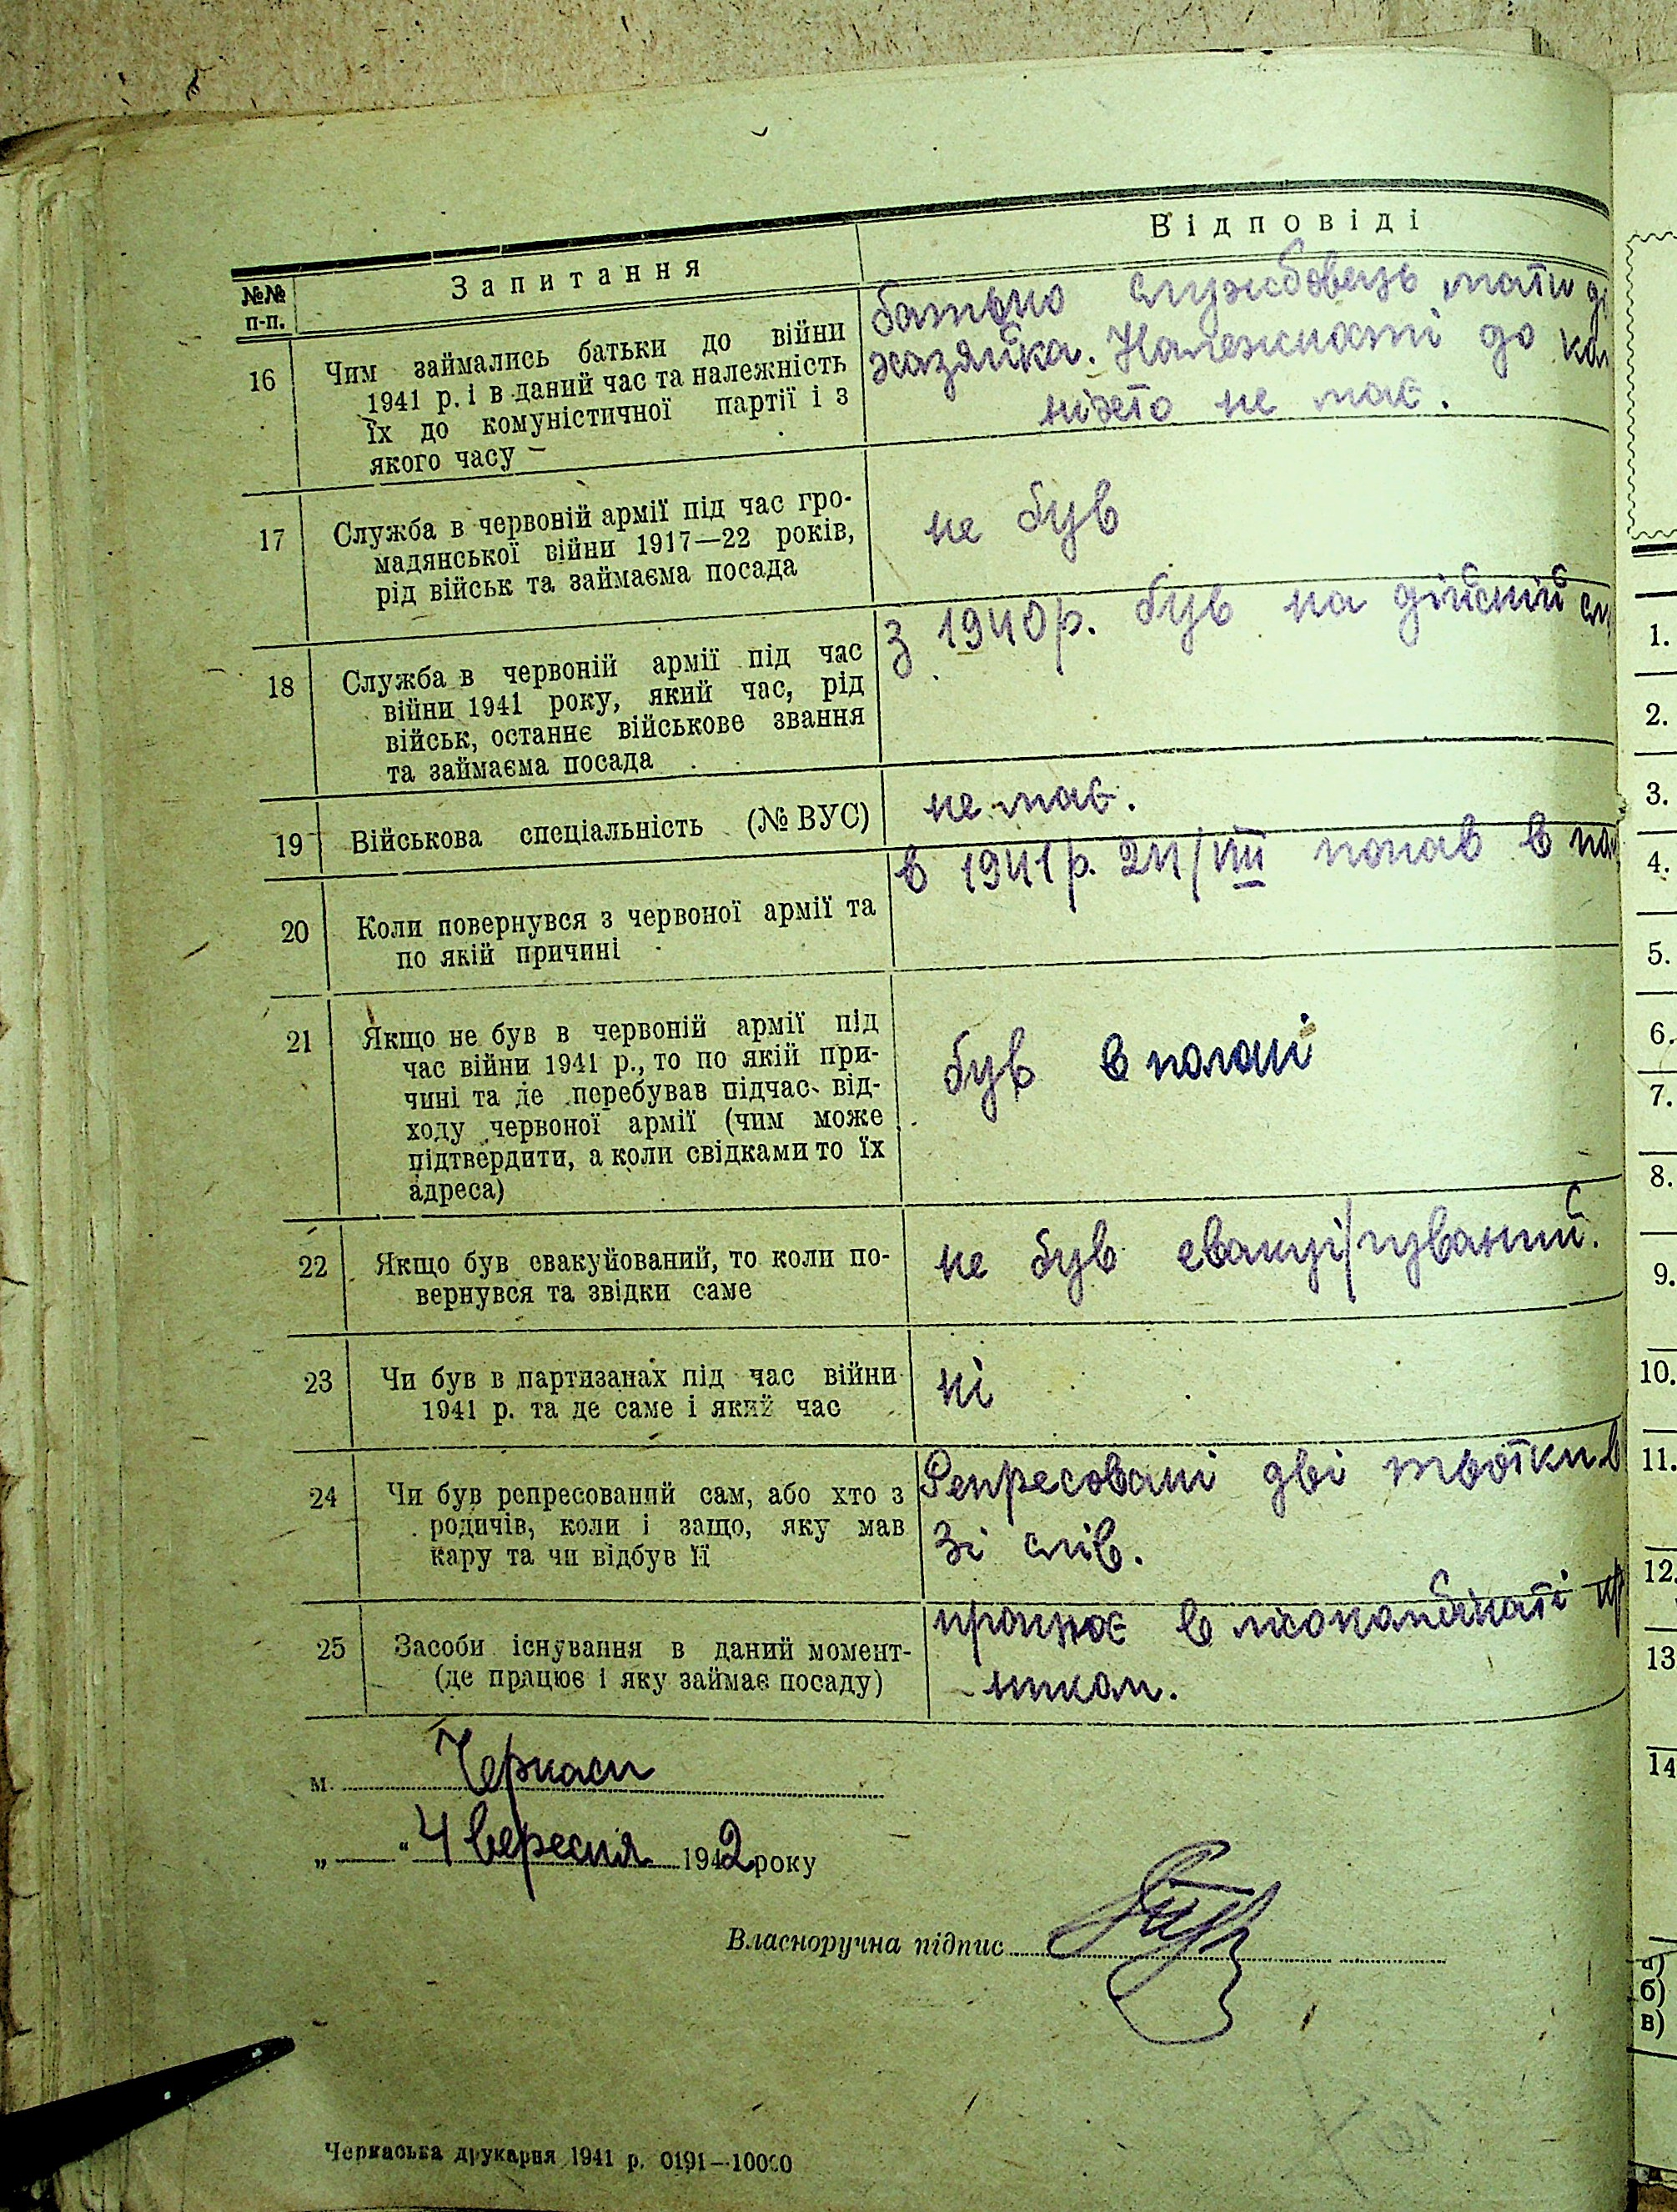 Відповіді
№№ п-п.
Запитання
16
Чим займались батьки до війни
1941 р. і в даний час та належність
їх до комуністичної партії і з
якого часу
батько службовець мати
хазяйка. Належності до
ніхто не має.
17
Служба в червоній армії під час гро-
мадянської війни 1917—22 років,
рід військ та займаєма посада
не був
18
Служба в червоній армії під час
війни 1941 року, який час, рід
військ, останнє військове звання
та займаєма посада
З 1940 р. був на дійсній
19
Військова спеціальність (№ ВУС)
не має.
20
Коли повернувся з червоної армії та
по якій причині
в 1941 р. 24/VIII попав в
21
Якщо не був в червоній армії під
час війни 1941 р., то по якій при-
чині та де перебував підчас від-
ходу червоної армії (чим може
підтвердити, а коли свідками то їх
адреса)
був в полоні
22
Якщо був евакуйований, то коли по-
вернувся та звідки саме
не був
23
Чи був в партизанах під час війни
1941 р. та де саме і який час
ні
24
Чи був репресований сам, або хто з
родичів, коли і защо, яку мав
кару та чи відбув її
Репресовані дві тьотки в
зі слів.
25
Засоби існування в даний момент-
(де працює і яку займає посаду)
працює в
-ником.
м. Черкаси
„ “ 4 вересня 1942 року
Власноручна підпис
Черкаська друкарня 1941 р. 0191—10000
1.
2.
3.
4.
5.
6.
7.
8.
9.
10.
11.
12.
13
14
б)
в)